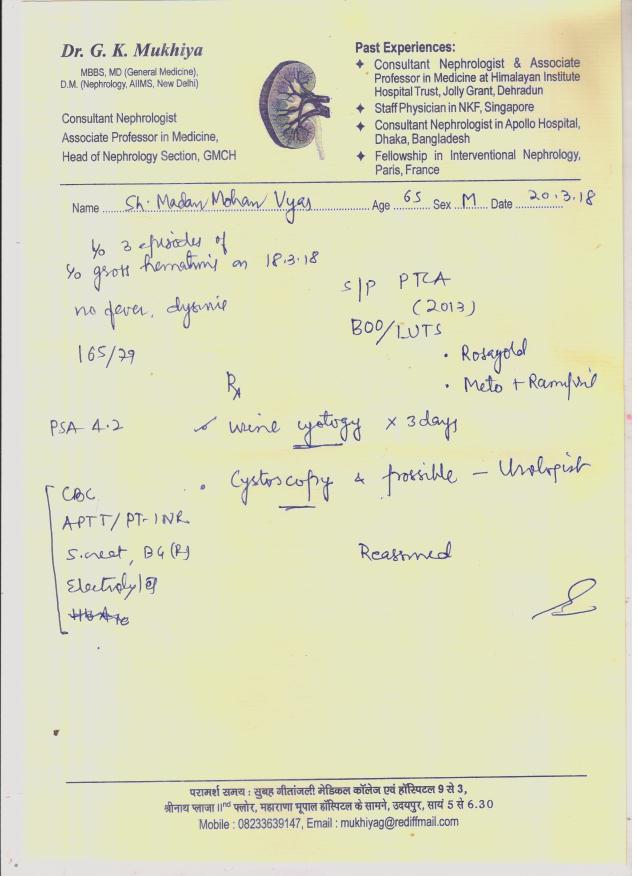 Dr. G. K. Mukhiya
MBBS, MD (General Medicine),
D.M. (Nephrology, AIIMS, New Delhi)
Consultant Nephrologist
Associate Professor in Medicine,
Head of Nephrology Section, GMCH
Past Experiences:
Consultant Nephrologist & Associate
Professor in Medicine at Himalayan Institute
Hospital Trust, Jolly Grant, Dehradun
Staff Physician in NKF, Singapore
Consultant Nephrologist in Apollo Hospital,
Dhaka, Bangladesh
Fellowship in Interventional Nephrology,
Paris, France
Name Sh. Madan Mohan Vyas Age 65 Sex M Date 20.3.18
3 episodes of
gross on 18.3.18
no fever,
165/79
S/P PTCA
(2013)
BOO/LUTS
• Rosagold
• Meto + Ramipril
Rx
PSA 4.2
urine cytology x 3 days
• Cystoscopy & possible - Urologist
CBC
APTT/PT-INR
S.creat, BG (R)
Reassured
परामर्श समय : सुबह गीतांजली मेडिकल कॉलेज एवं हॉस्पिटल 9 से 3,
श्रीनाथ प्लाजा IInd फ्लोर, महाराणा भूपाल हॉस्पिटल के सामने, उदयपुर, सायं 5 से 6.30
Mobile : 08233639147, Email : mukhiyag@rediffmail.com